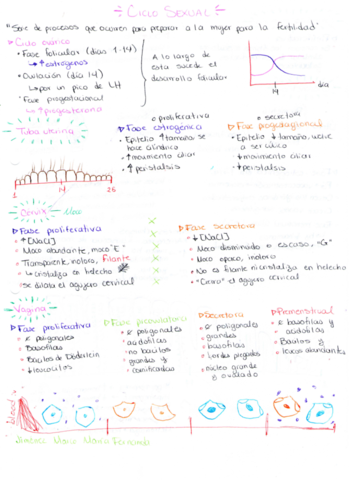 ÷ CICLO SEXUAL ÷
"Serie de procesos que ocurren para preparar a la mujer para la fertilidad"
Ciclo ovárico
• Fase folicular (días 1-14)
↳ ↑ estrógenos
• Ovulación (día 14)
↳ por un pico de LH
• Fase progestacional
↳ ↑ progesterona
A lo largo de
esta sucede el
desarrollo folicular
14
día
Tuba uterina
o proliferativa
Fase estrogénica
• Epitelio ↑ tamaño, se
hace cilíndrico
• ↑ movimiento ciliar
• ↑ peristalsis
o secretora
Fase progestacional
• Epitelio ↓ tamaño, vuelve
a ser cúbico
• ↓ movimiento ciliar
• ↓ peristalsis
1 14 28
Cérvix - Moco
Fase proliferativa
• ↑ [NaCl]
• Moco abundante, moco "E"
• Transparente, inoloro, filante
↳ cristaliza en helecho
• Se dilata el agujero cervical
Fase secretora
• ↓ [NaCl]
• Moco disminuido o escaso, "G"
• Moco opaco, inoloro
• No es filante ni cristaliza en helecho
• "Cierra" el agujero cervical
Vagina
Fase proliferativa
• poligonales
• Basófilas
• Bacilos de Döderlein
• Leucocitos
Fase ovulatoria
• poligonales
• acidófilas
• no bacilos
• grandes y
• cornificadas
Secretora
• poligonales
grandes
• basófilas
• bordes plegados
• Núcleo grande
y ovalado
Premenstrual
• basófilas y
acidófilas
• Bacilos y
• leucos abundantes
blood
Jiménez Mora María Fernanda